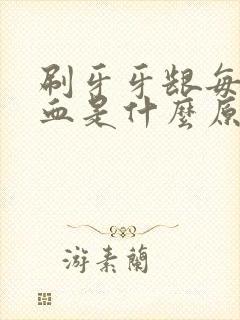 刷牙牙龈每
血是什麼原
游素蘭